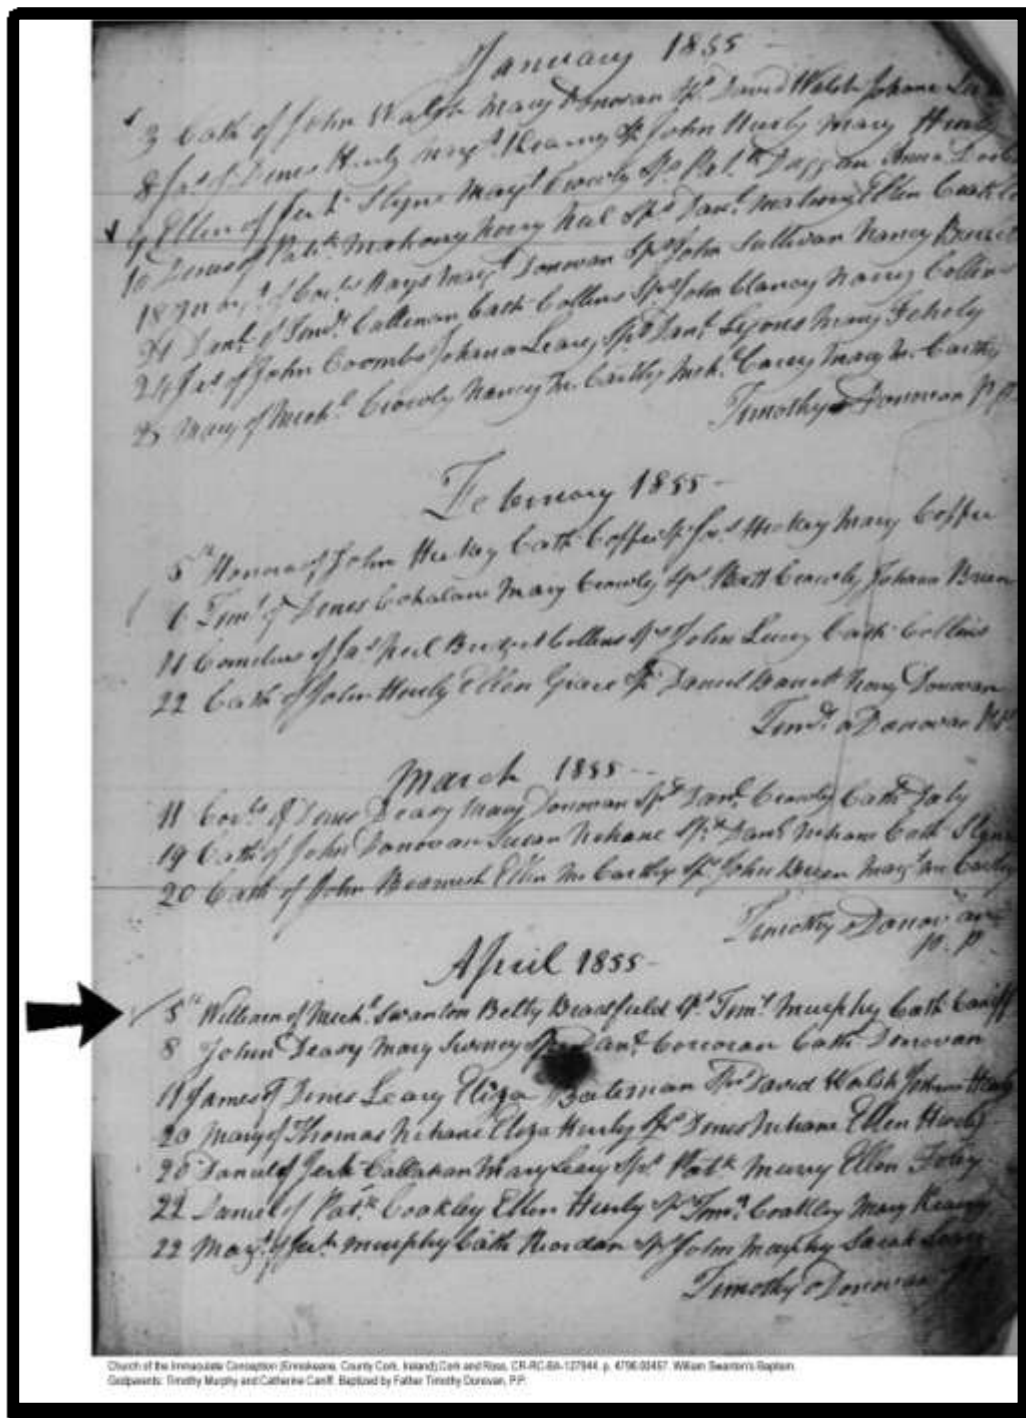 January 1855
3 Cath of John Walsh Mary Donovan Sps David Walsh Johana
8 Jas of Denis Hurly Margt Kearny Sp John Hurly Mary Hurly
9 Ellen of Slyne Margt Crowly Sps Patk Duggan Anna
10 Denis of Patk Mahony Nory Neal Sps Danl Mahony Ellen
18 Margt of Cors Hays Margt Donovan Sps John Sullivan Nancy
21 Danl of Timy Callinan Cath Collins Sps John Clancy Nancy Collins
24 Jas of John Coombs Johana Leary Sps Danl Lyons Mary Fehely
Mary of Michl Crowly Nancy Mc Carthy Mich Carey Mary Mc Carthy
Timothy o Donovan P.P.
February 1855
5th Honora of John Hickey Cath Coffee Sp Jas Hickey Mary Coffee
6 Timy of Denis Cohalane Mary Crowly Sps Matt Crowly Johana Brien
11 Cornelius of Jas Neil Bridget Collins Sps John Leary Cath Collins
22 Cath of John Hurly Ellen Grace Sp Daniel Barrett Nory Donovan
Timy o Donovan P.P.
March 1855
11 Cors of Denis Deasy Mary Donovan Sps Danl Crowly Cath Daly
19 Cath of John Donovan Susan Nehane Sps Danl Nehane Cath Slyne
20 Cath of John Beamish Ellen Mc Carthy Sps John Margt Mc Carthy
Timothy o Donovan
P.P.
April 1855
5th William of Michl Swanton Betty Bradfield Sps Timy Murphy Cath Caniff
8 John Deasy Mary Swiney Sps Danl Corcoran Cath Donovan
11 James of Denis Leary Eliza Bateman Sps David Walsh Johana Hurly
20 Mary of Thomas Nehane Eliza Hurly Sps Denis Nehane Ellen Hurly
20 Daniel of Jerh Callahan Mary Leary Sps Patk Murry Ellen Foley
22 Daniel of Patk Coakley Ellen Hurly Sp Timy Coakley Mary Kearny
22 Margt of Jerh Murphy Cath Riordan Sps John Murphy Sarah Leary
Timothy o Donovan P.P.
Church of the Immaculate Conception (Enniskeane, County Cork, Ireland) Cork and Ross, CR-RC-BA-127944, p. 4796.02457. William Swanton's Baptism.
Godparents: Timothy Murphy and Catherine Caniff. Baptized by Father Timothy Donovan, P.P.